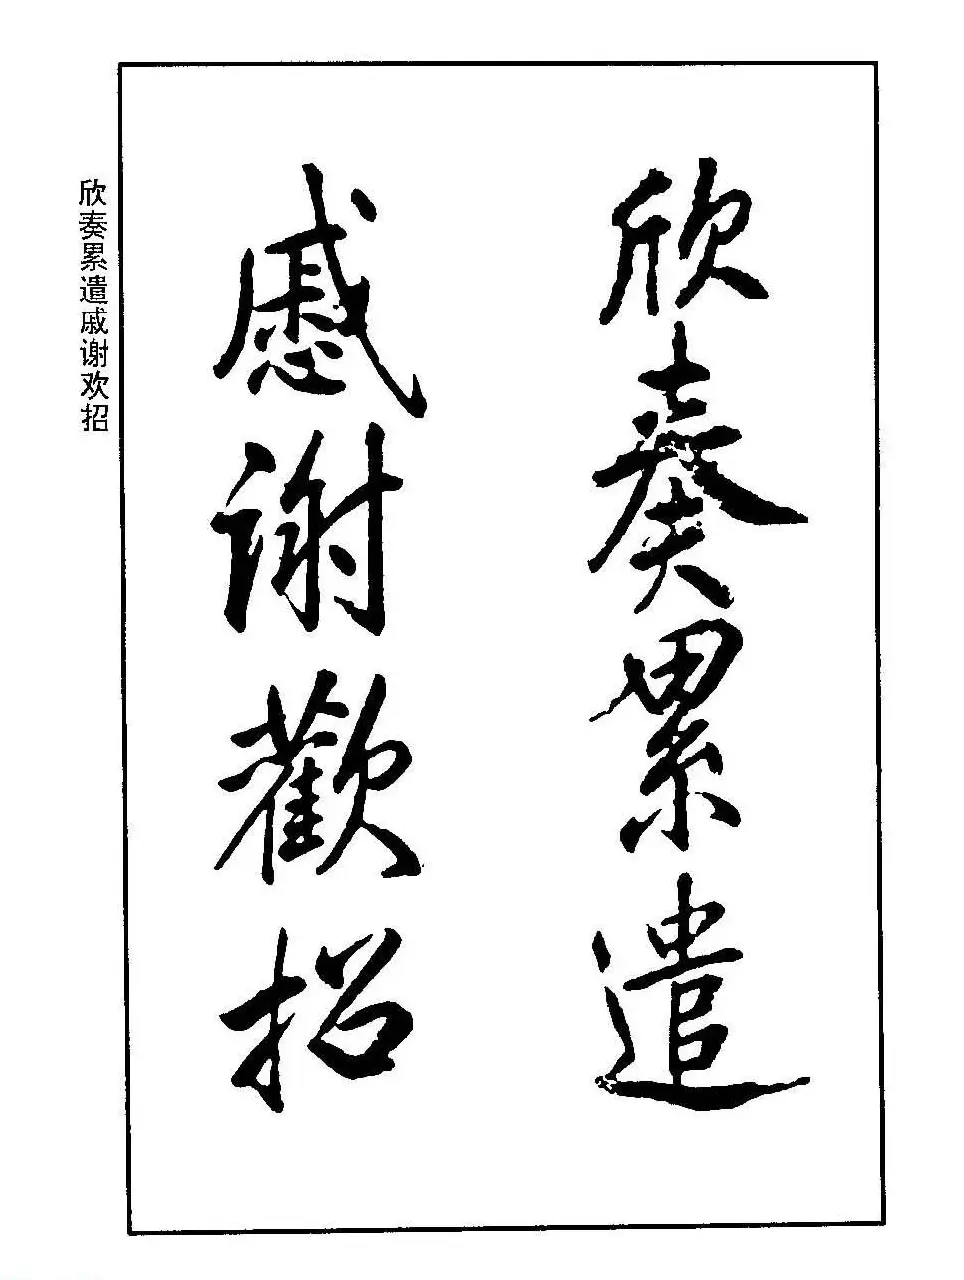 欣奏累遣
慼謝歡招
欣奏累遣戚谢欢招